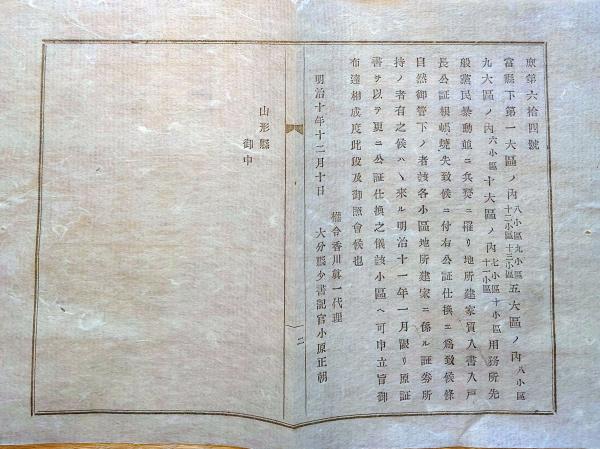 庶第六拾四號
當縣下第一大區ノ内八小區九小區十二小區十三小區五大區ノ内八小區
九大區ノ内六小區十大區ノ内七小區十小區十一小區用務所先
般黨民暴動並ニ兵燹ニ罹リ地所建家質入書入戸
長公証順帳燒失致候ニ付右公証仕換ヱ為致候條
自然御管下ノ者該各小區地所建家ニ係ル証劵所
持ノ者有之候ハヽ来ル明治十一年一月限リ原証
書ヲ以テ更ニ公証仕換之儀該小區ヘ可申立旨御
布達相成度此段及御照會候也
明治十年十二月十日
權令香川眞一代理
大分縣少書記官小原正朝
二
山形縣
御中